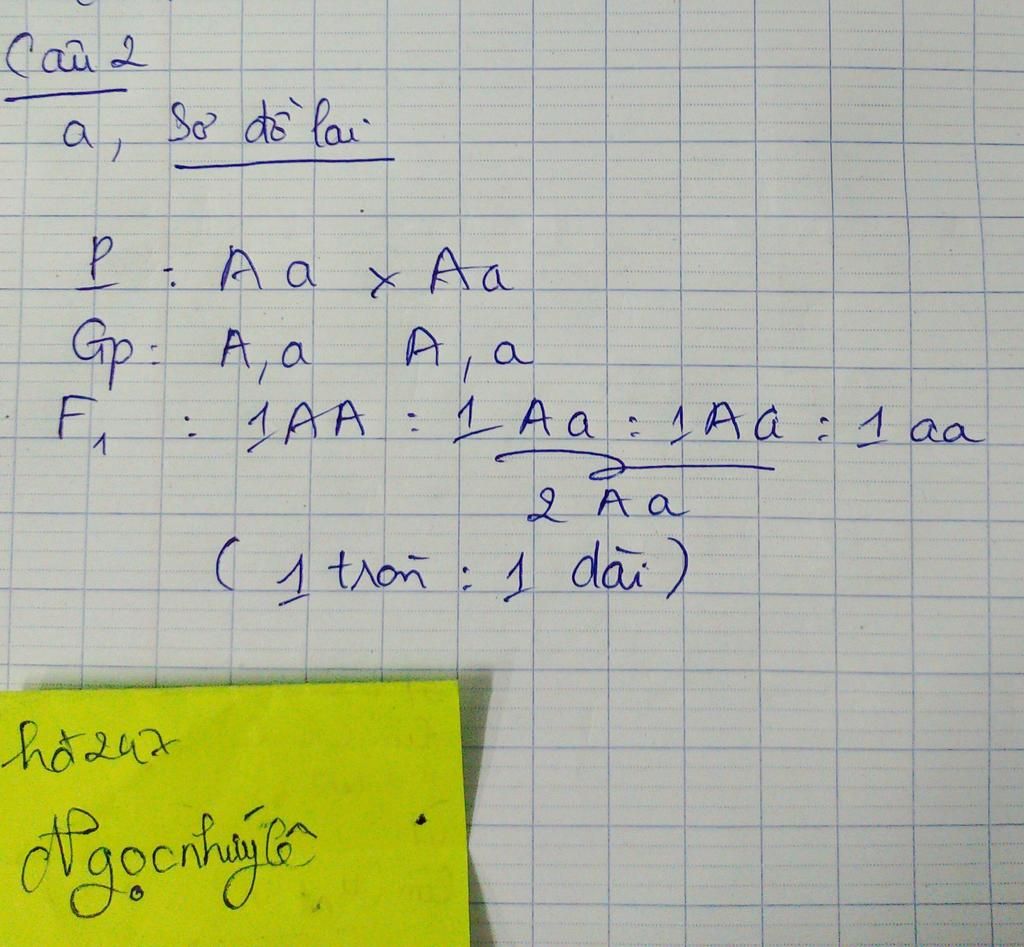 Câu 2
a, Sơ đồ lai
P : Aa × Aa
Gp: A, a A, a
F1 : 1AA : 1 Aa : 1Aa : 1 aa
2 Aa
( 1 tròn : 1 dài )
hd247
Ngọcnhuýlê